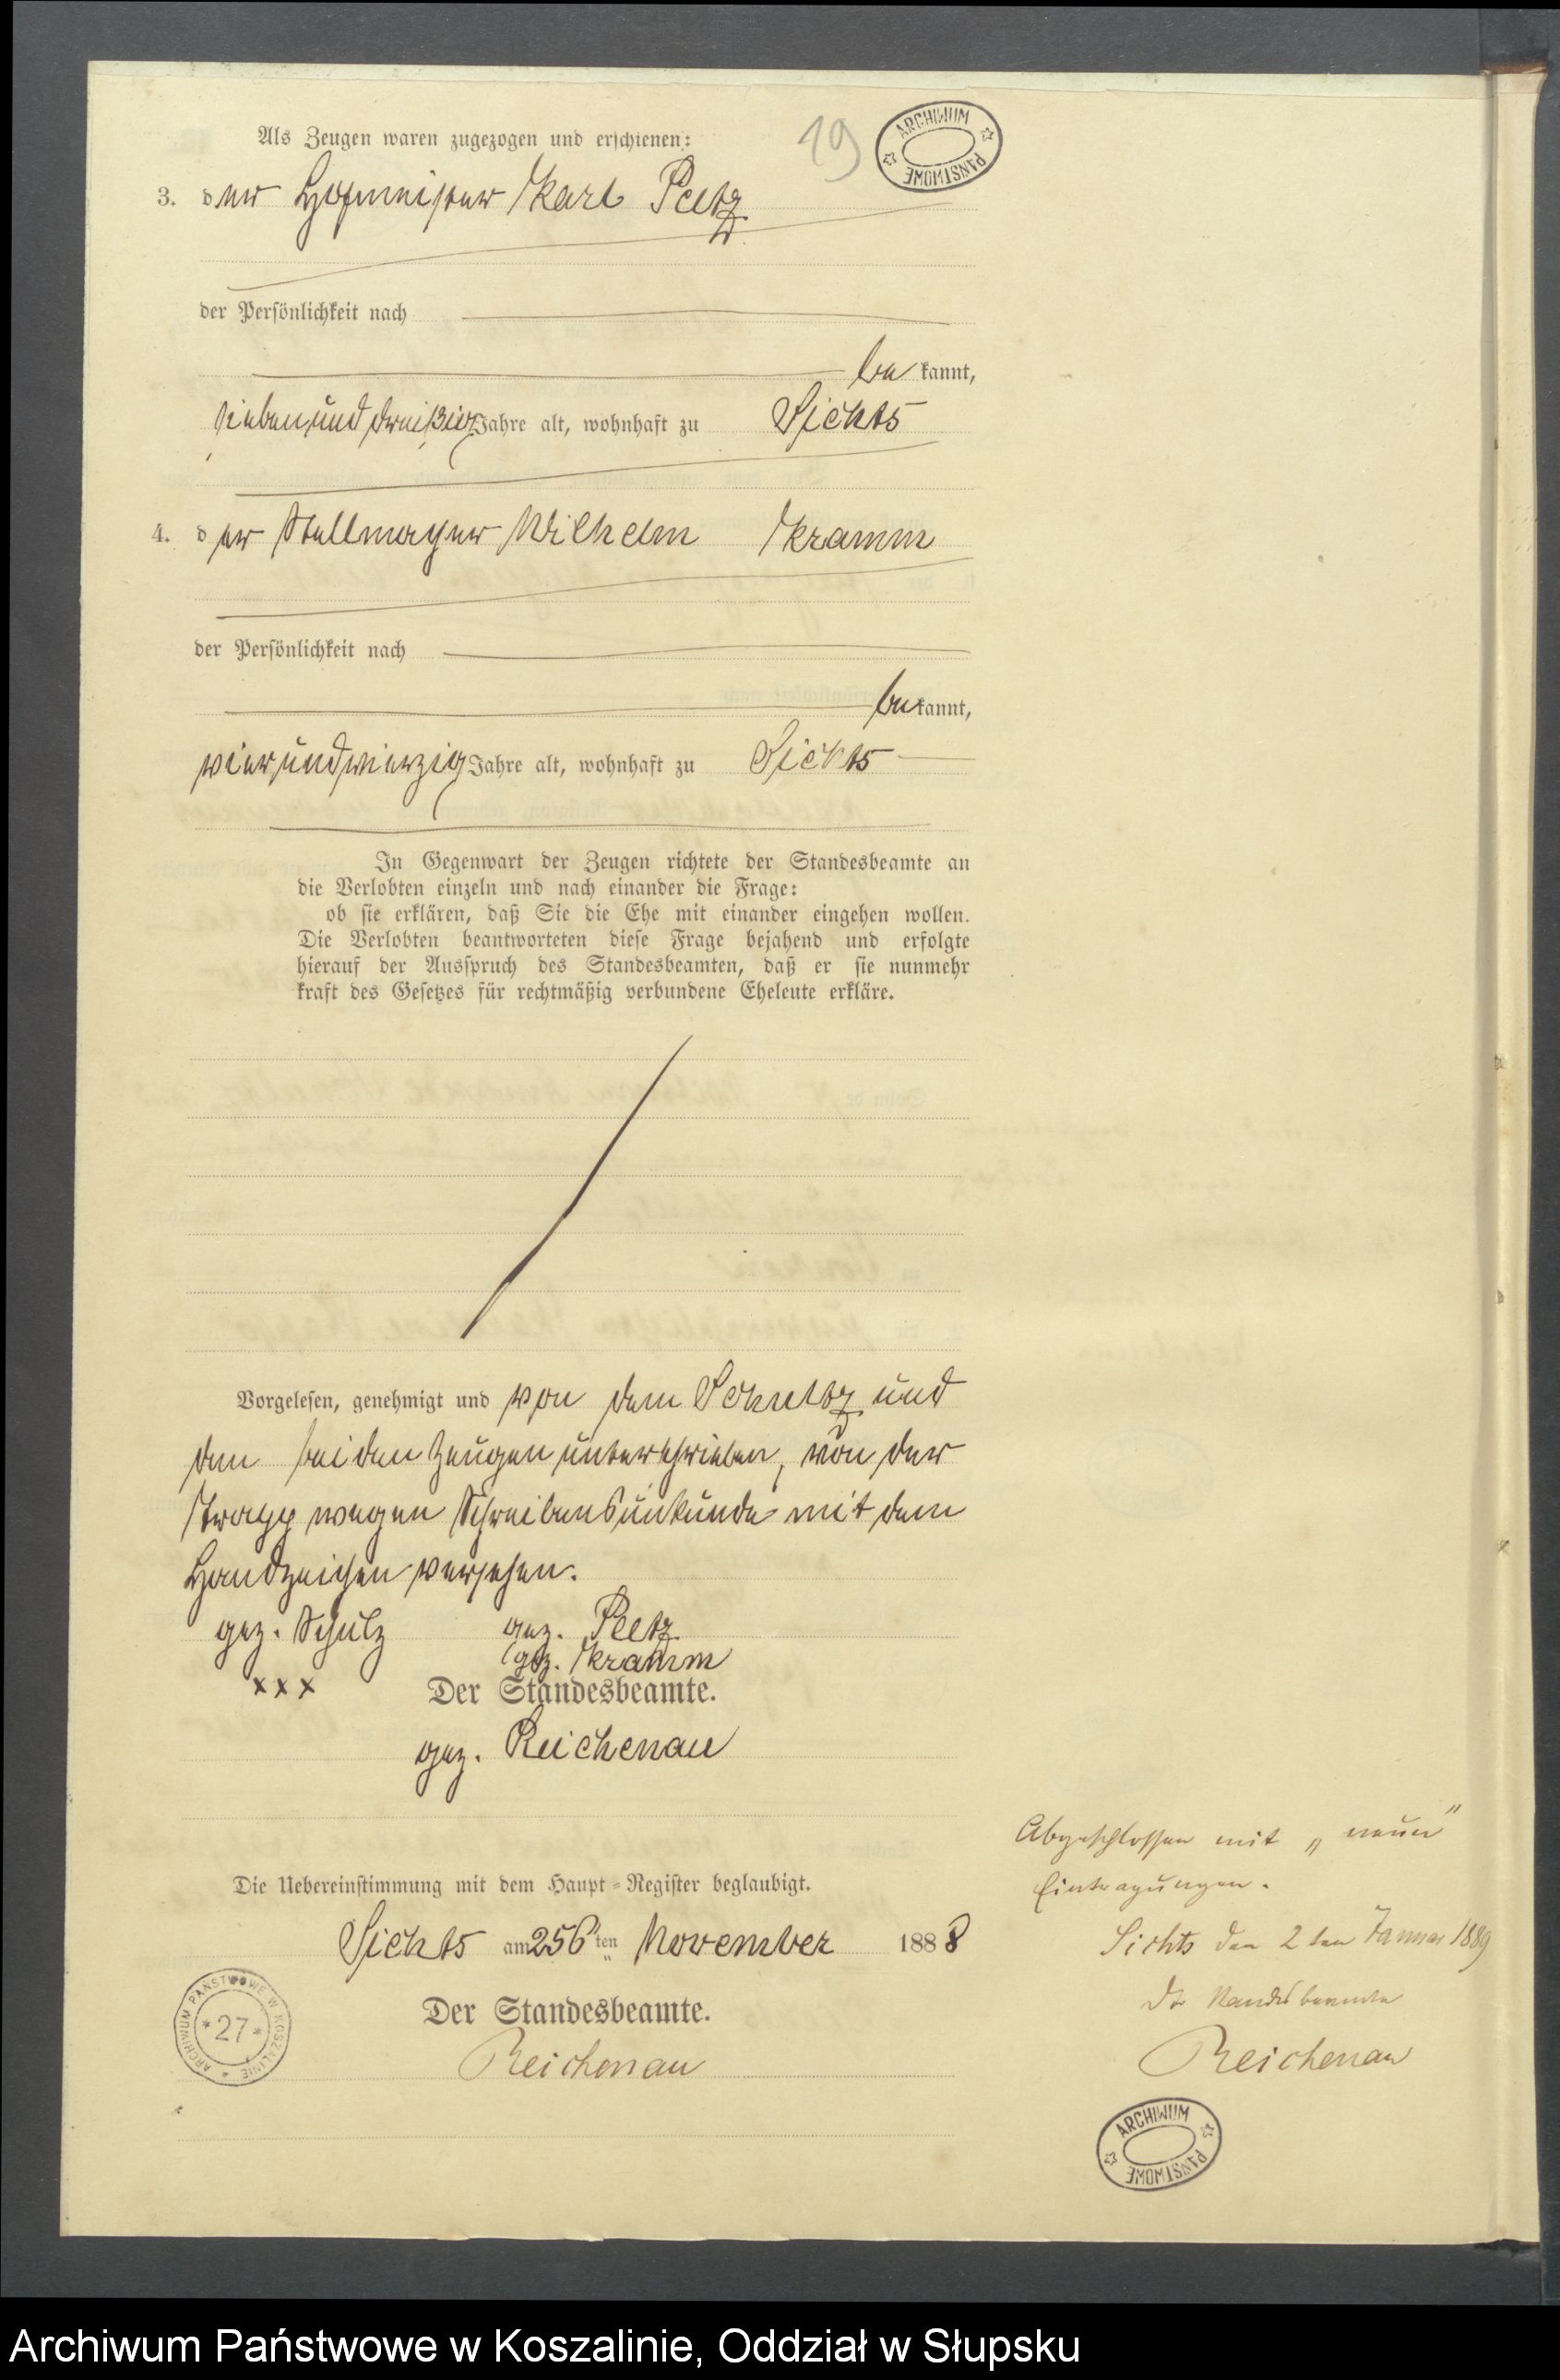 Als Zeugen waren zugezogen und erschienen:
19
ARCHIWUM PAŃSTWOWE
3. der Hofmeister Karl Peetz
der Persönlichkeit nach
bekannt,
siebenunddreißig Jahre alt, wohnhaft zu Sichts
4. der Stellmacher Wilhelm Kramm
der Persönlichkeit nach
bekannt,
vierundvierzig Jahre alt, wohnhaft zu Sichts
In Gegenwart der Zeugen richtete der Standesbeamte an
die Verlobten einzeln und nach einander die Frage:
ob sie erklären, daß Sie die Ehe mit einander eingehen wollen.
Die Verlobten beantworteten diese Frage bejahend und erfolgte
hierauf der Ausspruch des Standesbeamten, daß er sie nunmehr
kraft des Gesetzes für rechtmäßig verbundene Eheleute erkläre.
Vorgelesen, genehmigt und von dem und
den beiden Zeugen unterschrieben, von der
wegen Schreibensunkunde mit dem
Handzeichen versehen.
gez. Schulz gez. Peetz
gez. Kramm
xxx Der Standesbeamte.
gez. Reichenau
Abgeschlossen mit „neun"
Eintragungen.
Die Uebereinstimmung mit dem Haupt-Register beglaubigt.
Sichts am ten November 1888
Sichts den 2ten Januar 1889
Der Standesbeamte
Reichenau
Der Standesbeamte.
Reichenau
ARCHIWUM PAŃSTWOWE W KOSZALINIE
*27*
ARCHIWUM PAŃSTWOWE
Archiwum Państwowe w Koszalinie, Oddział w Słupsku